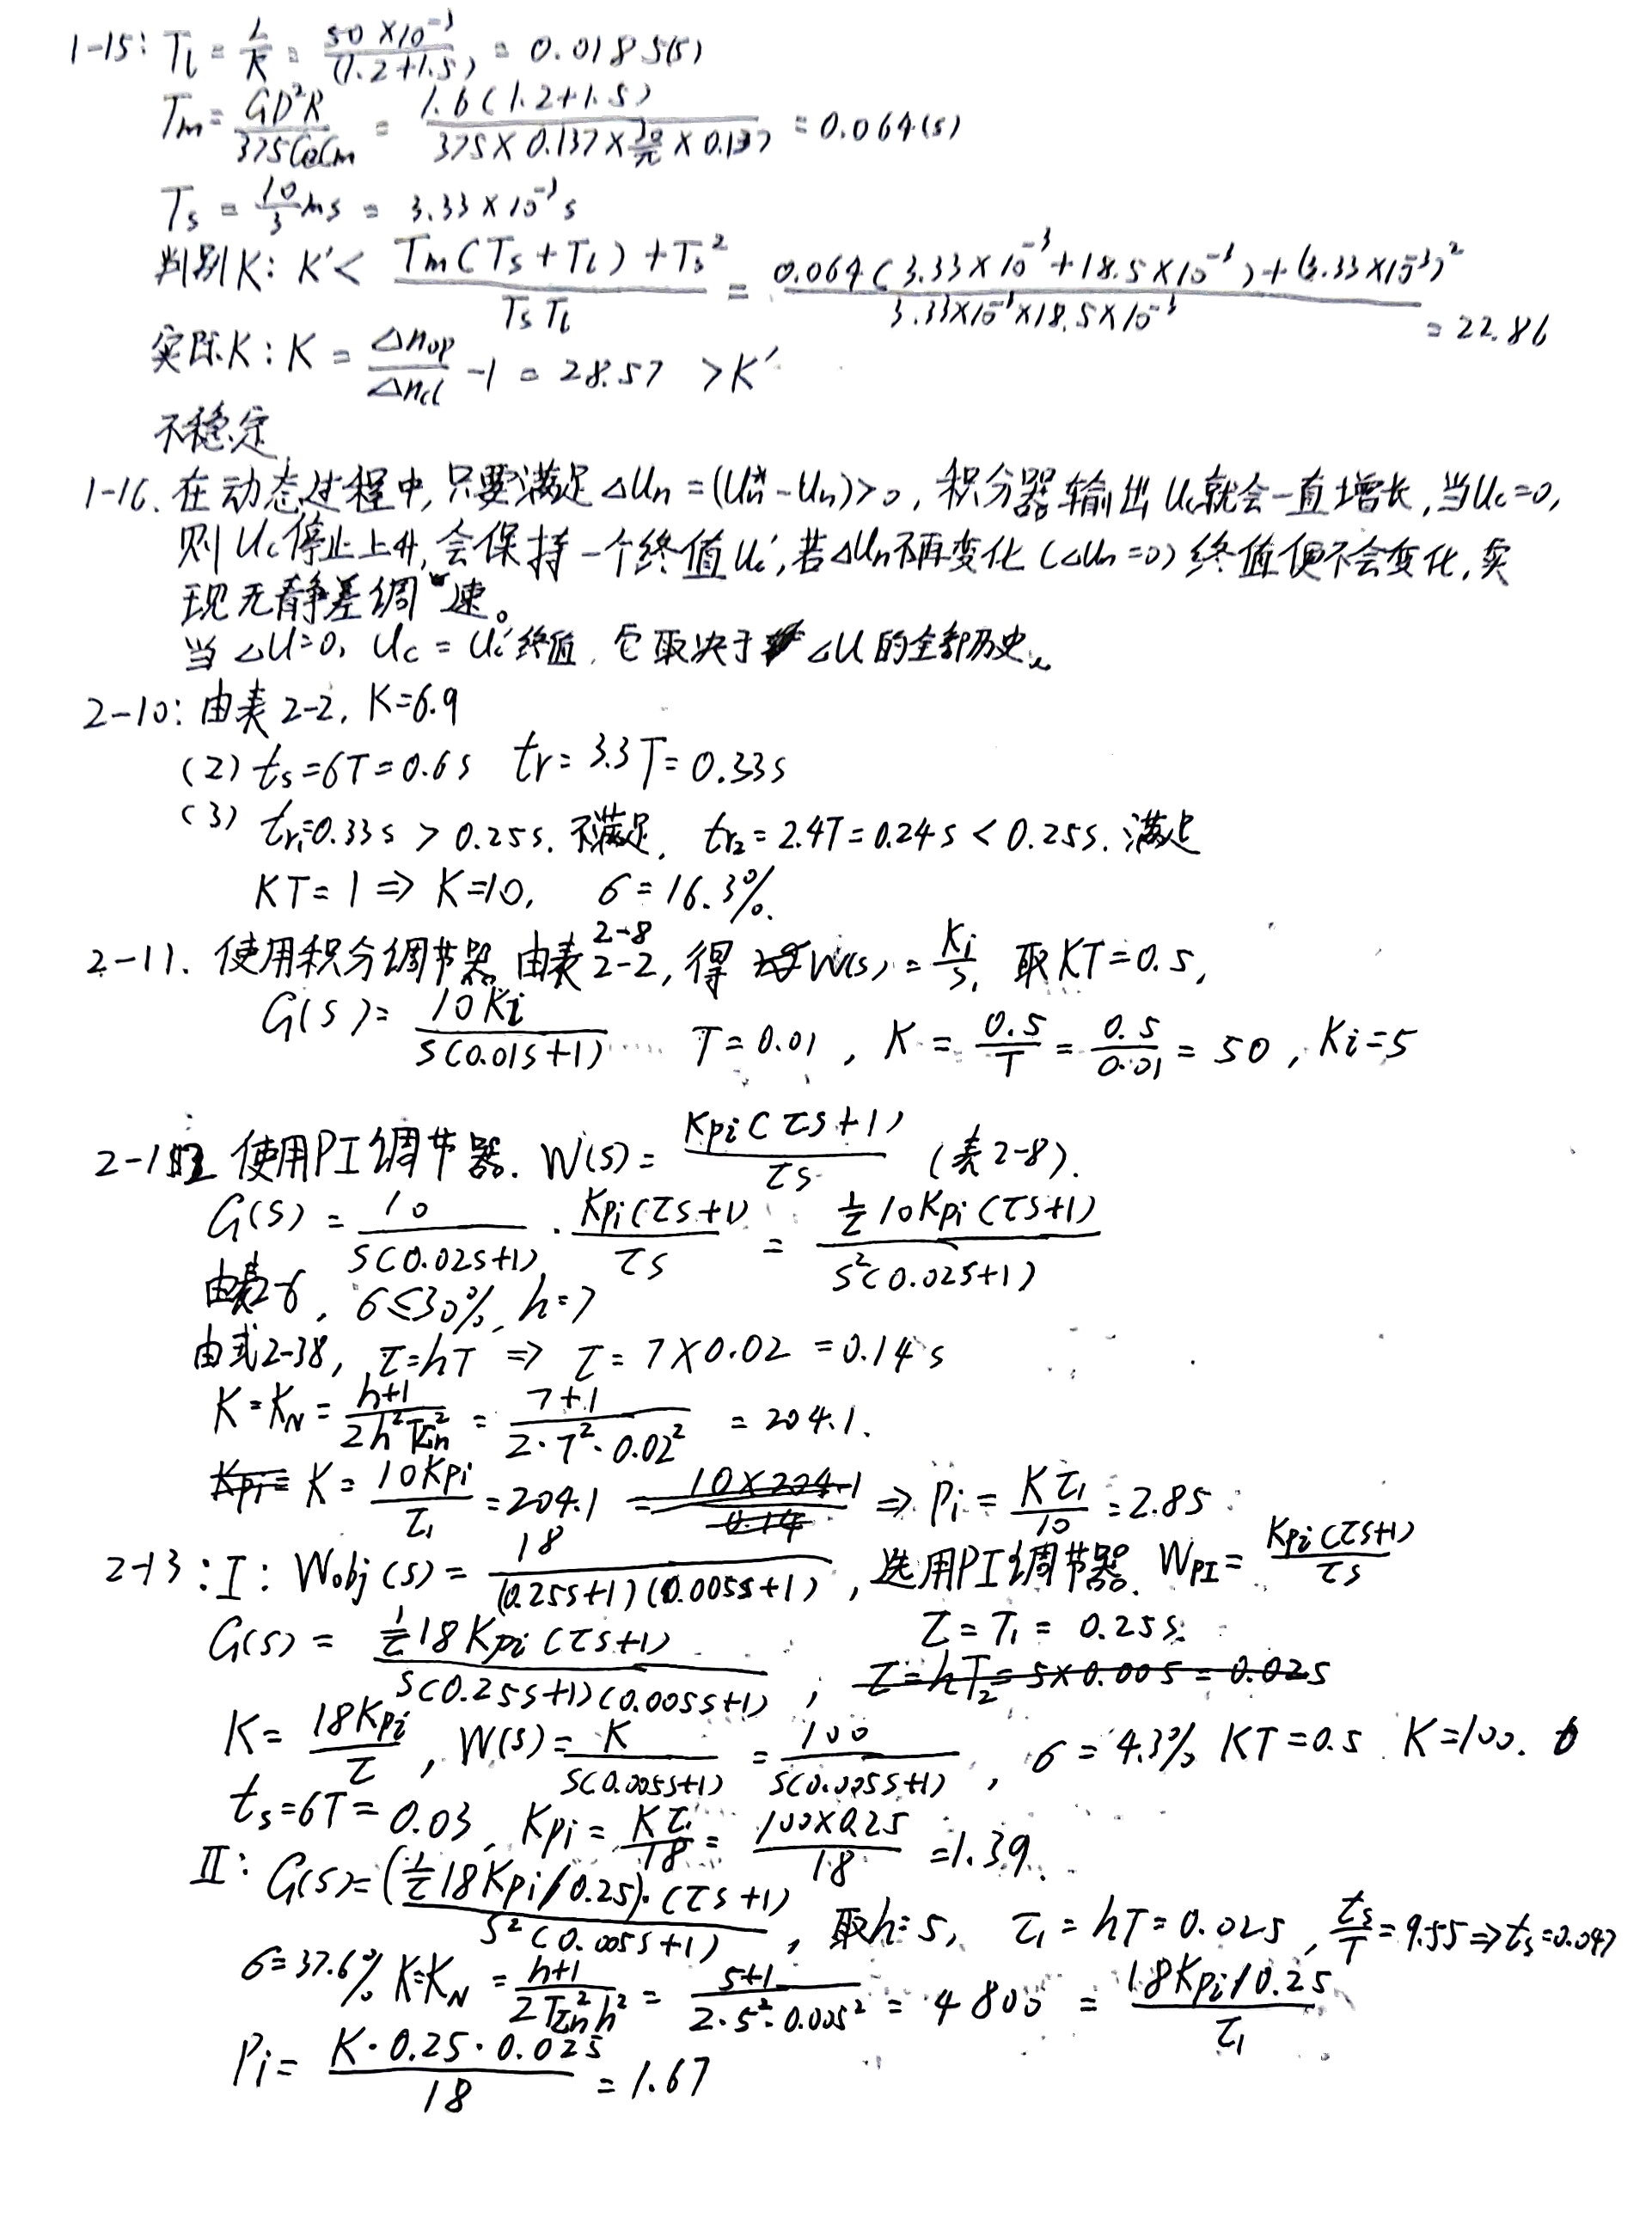 1-15: T_l = L/R = 50×10^-3/(1.2+1.5) = 0.0185(s)
T_m = GD²R/375CeCm = 1.6(1.2+1.5)/(375×0.137×30/π×0.137) = 0.064(s)
T_s = 10/3 ms = 3.33×10^-3 s
判别K: K' < (T_m(T_s+T_l)+T_s²)/(T_sT_l) = (0.064(3.33×10^-3+18.5×10^-3)+(3.33×10^-3)²)/(3.33×10^-3×18.5×10^-3) = 22.86
实际K: K = Δn_op/Δn_cl -1 = 28.57 >K'
不稳定
1-16. 在动态过程中,只要满足ΔUn=(Un*-Un)>0,积分器输出Uc就会一直增长,当Uc=0,
则Uc停止上升,会保持一个终值Uc',若ΔUn不再变化(ΔUn=0)终值便不会变化,实
现无静差调速。
当ΔU=0, Uc = Uc'终值,它取决于ΔU的全部历史。
2-10: 由表2-2, K=6.9
(2) ts=6T=0.6s tr=3.3T=0.33s
(3) tr1=0.33s > 0.25s. 不满足, tr2=2.4T=0.24s < 0.25s. 满足
KT=1 ⇒ K=10, σ=16.3%.
2-11. 使用积分调节器 由表2-8 2-2, 得 W(s)=Ki/s, 取KT=0.5,
G(s)=10Ki/(s(0.01s+1)) T=0.01, K=0.5/T=0.5/0.01=50, Ki=5
2-12 使用PI调节器. W(s)=Kpi(τs+1)/τs (表2-8).
G(s)=10/(s(0.02s+1))·Kpi(τs+1)/τs = (1/τ 10Kpi(τs+1))/(s²(0.02s+1))
由表2-6, σ≤30%, h=7
由式2-38, τ=hT ⇒ τ=7×0.02=0.14s
K=K_N=(h+1)/(2h²T_Σn²)=(7+1)/(2·7²·0.02²)=204.1.
Kpi= K=10Kpi/τ1=204.1 = 10×204.1/0.14 ⇒ Pi=Kτ1/10=2.85
2-13: I: Wobj(s)=18/((0.25s+1)(0.005s+1)), 选用PI调节器. W_PI=Kpi(τs+1)/τs
τ=T1=0.25s.
G(s)=(1/τ 18Kpi(τs+1))/(s(0.25s+1)(0.005s+1)), τ=hT2=5×0.005=0.025
K=18Kpi/τ, W(s)=K/(s(0.005s+1))=100/(s(0.005s+1)), σ=4.3% KT=0.5. K=100.
ts=6T=0.03, Kpi=Kτ1/18=100×0.25/18=1.39.
II: G(s)=((1/τ 18Kpi/0.25)·(τs+1))/(s²(0.005s+1)), 取h=5, τ1=hT=0.025, ts/T=9.55⇒ts=0.047
σ=37.6% K=K_N=(h+1)/(2T_Σn²h²)=(5+1)/(2·5²·0.005²)=4800=(18Kpi/0.25)/τ1
Pi=K·0.25·0.025/18=1.67